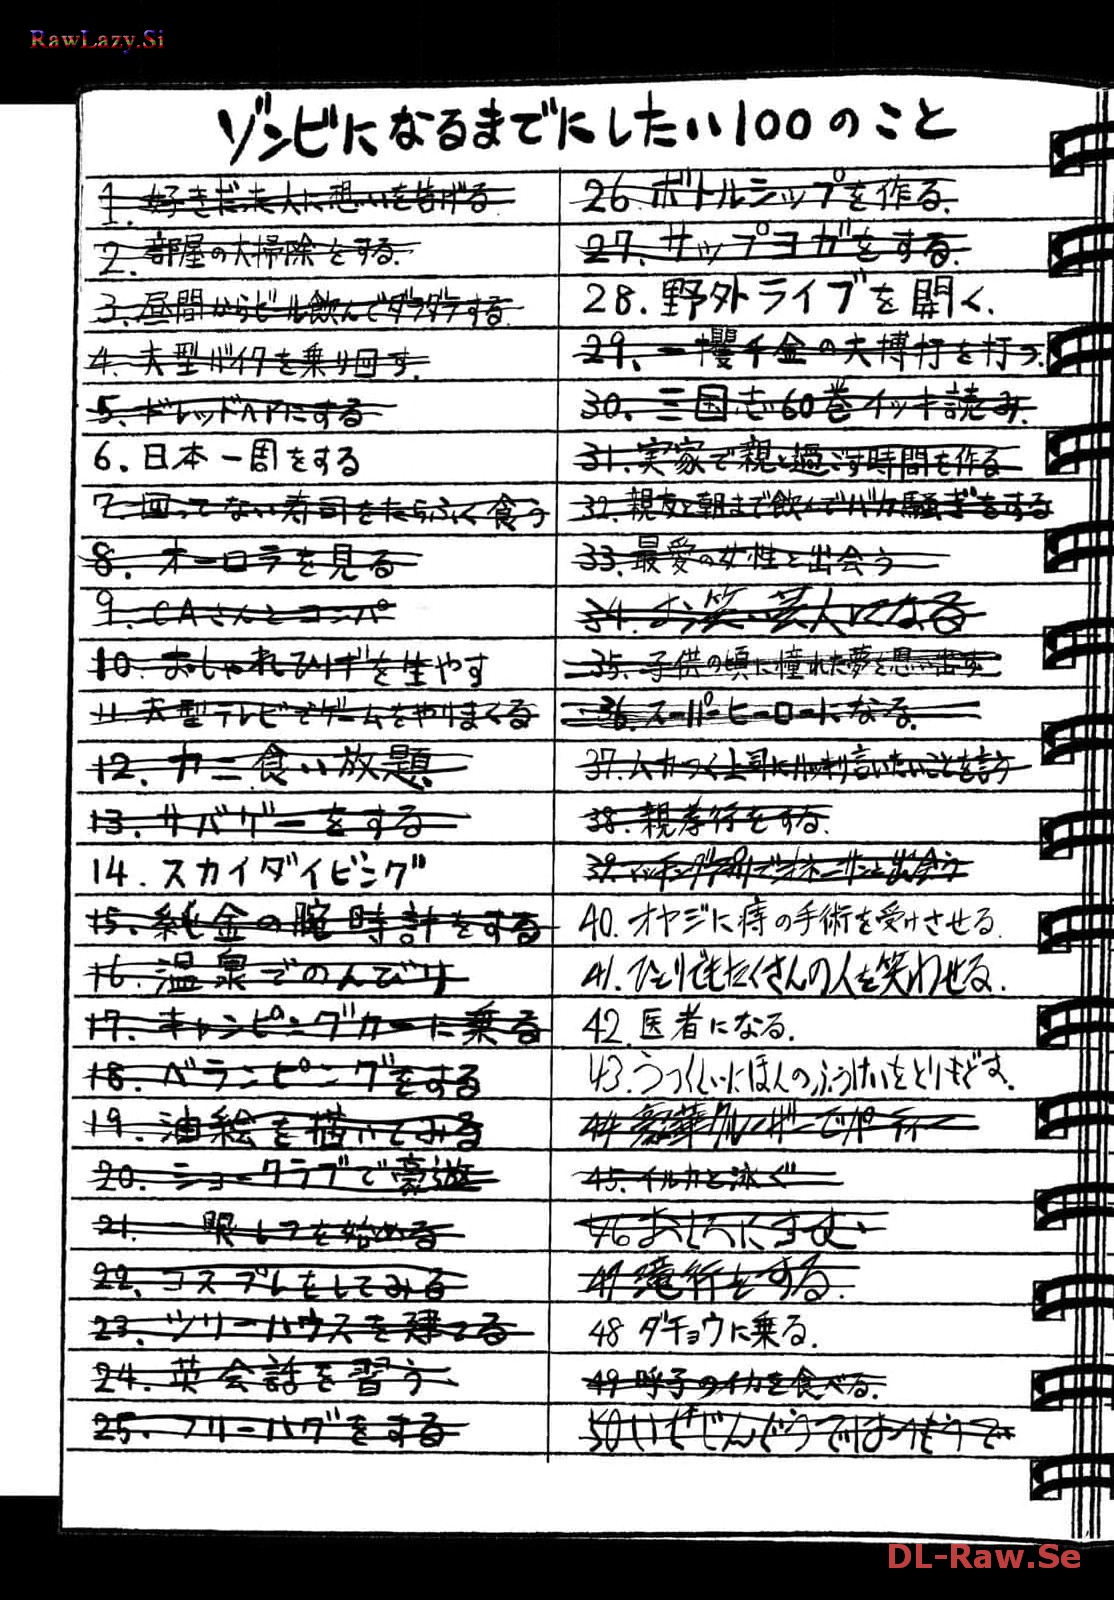 RawLazy.Si
ゾンビになるまでにしたい100のこと
1. 好きだった人に想いを告げる
2. 部屋の大掃除をする.
3. 昼間からビール飲んでダラダラする.
4. 大型バイクを乗り回す.
5. ドレッドヘアにする
6. 日本一周をする
7. 回ってない寿司をたらふく食う
8. オーロラを見る
9. CAさんとコンパ
10. おしゃれひげを生やす
11. 大型テレビでゲームをやりまくる
12. カニ食い放題
13. サバゲーをする
14. スカイダイビング
15. 純金の腕時計をする
16. 温泉でのんびり
17. キャンピングカーに乗る
18. ベランピングをする
19. 油絵を描いてみる
20. ショークラブで豪遊
21. 一眼レフを始める
22. コスプレをしてみる
23. ツリーハウスを建てる
24. 英会話を習う
25. フリーハグをする
26. ボトルシップを作る.
27. サップヨガをする.
28. 野外ライブを開く.
29. 一攫千金の大博打を打つ.
30. 三国志60巻イッキ読み.
31. 実家で親と過ごす時間を作る
32. 親友と朝まで飲んでバカ騒ぎをする
33. 最愛の女性と出会う
34. お笑い芸人になる
35. 子供の頃に憧れた夢を思い出す
36. スーパーヒーローになる.
37. ムカつく上司にハッキリ言いたいことを言う
38. 親孝行をする.
39. マッチングアプリでオネーサンと出会う
40. オヤジに痔の手術を受けさせる.
41. ひとりでもたくさんの人を笑わせる.
42. 医者になる.
43. うつくしいにほんのふうけいをとりもどす.
44. 豪華クルーザーでパーティー
45. イルカと泳ぐ
46 おとうにます
47 滝行をする.
48 ダチョウに乗る.
49 呼子のイカを食べる.
50
DL-Raw.Se